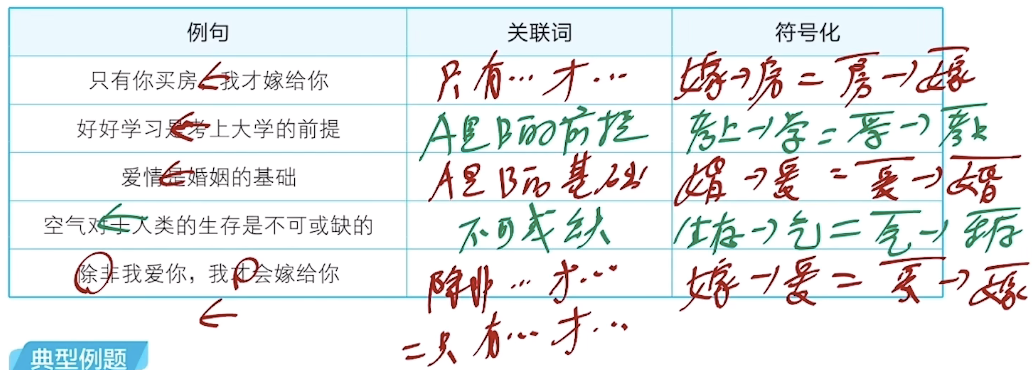 例句 关联词 符号化
只有你买房，我才嫁给你 ← 只有…才… 嫁→房 = 房→嫁
好好学习是考上大学的前提 ← A是B的前提 考上→学 = 学→考上
爱情是婚姻的基础 ← A是B的基础 婚→爱 = 爱→婚
空气对于人类的生存是不可或缺的 ← 不可或缺 生存→气 = 气→生存
除非我爱你，我才会嫁给你 除非…才… 嫁→爱 = 爱→嫁
← =只有…才…
典型例题